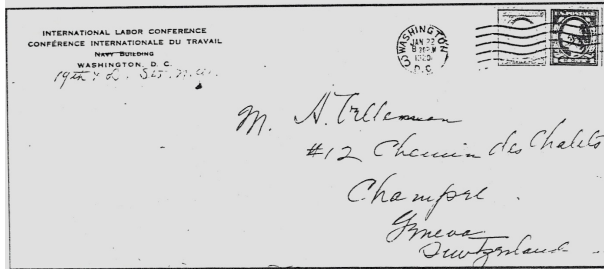 INTERNATIONAL LABOR CONFERENCE
CONFÉRENCE INTERNATIONALE DU TRAVAIL
NAVY BUILDING
WASHINGTON, D. C.
19th & L. Sts. N.W.
WASHINGTON
JAN 22
1920
D.C.
M. A.
#12 Chemin des Chalets
Champel
Geneva
Switzerland